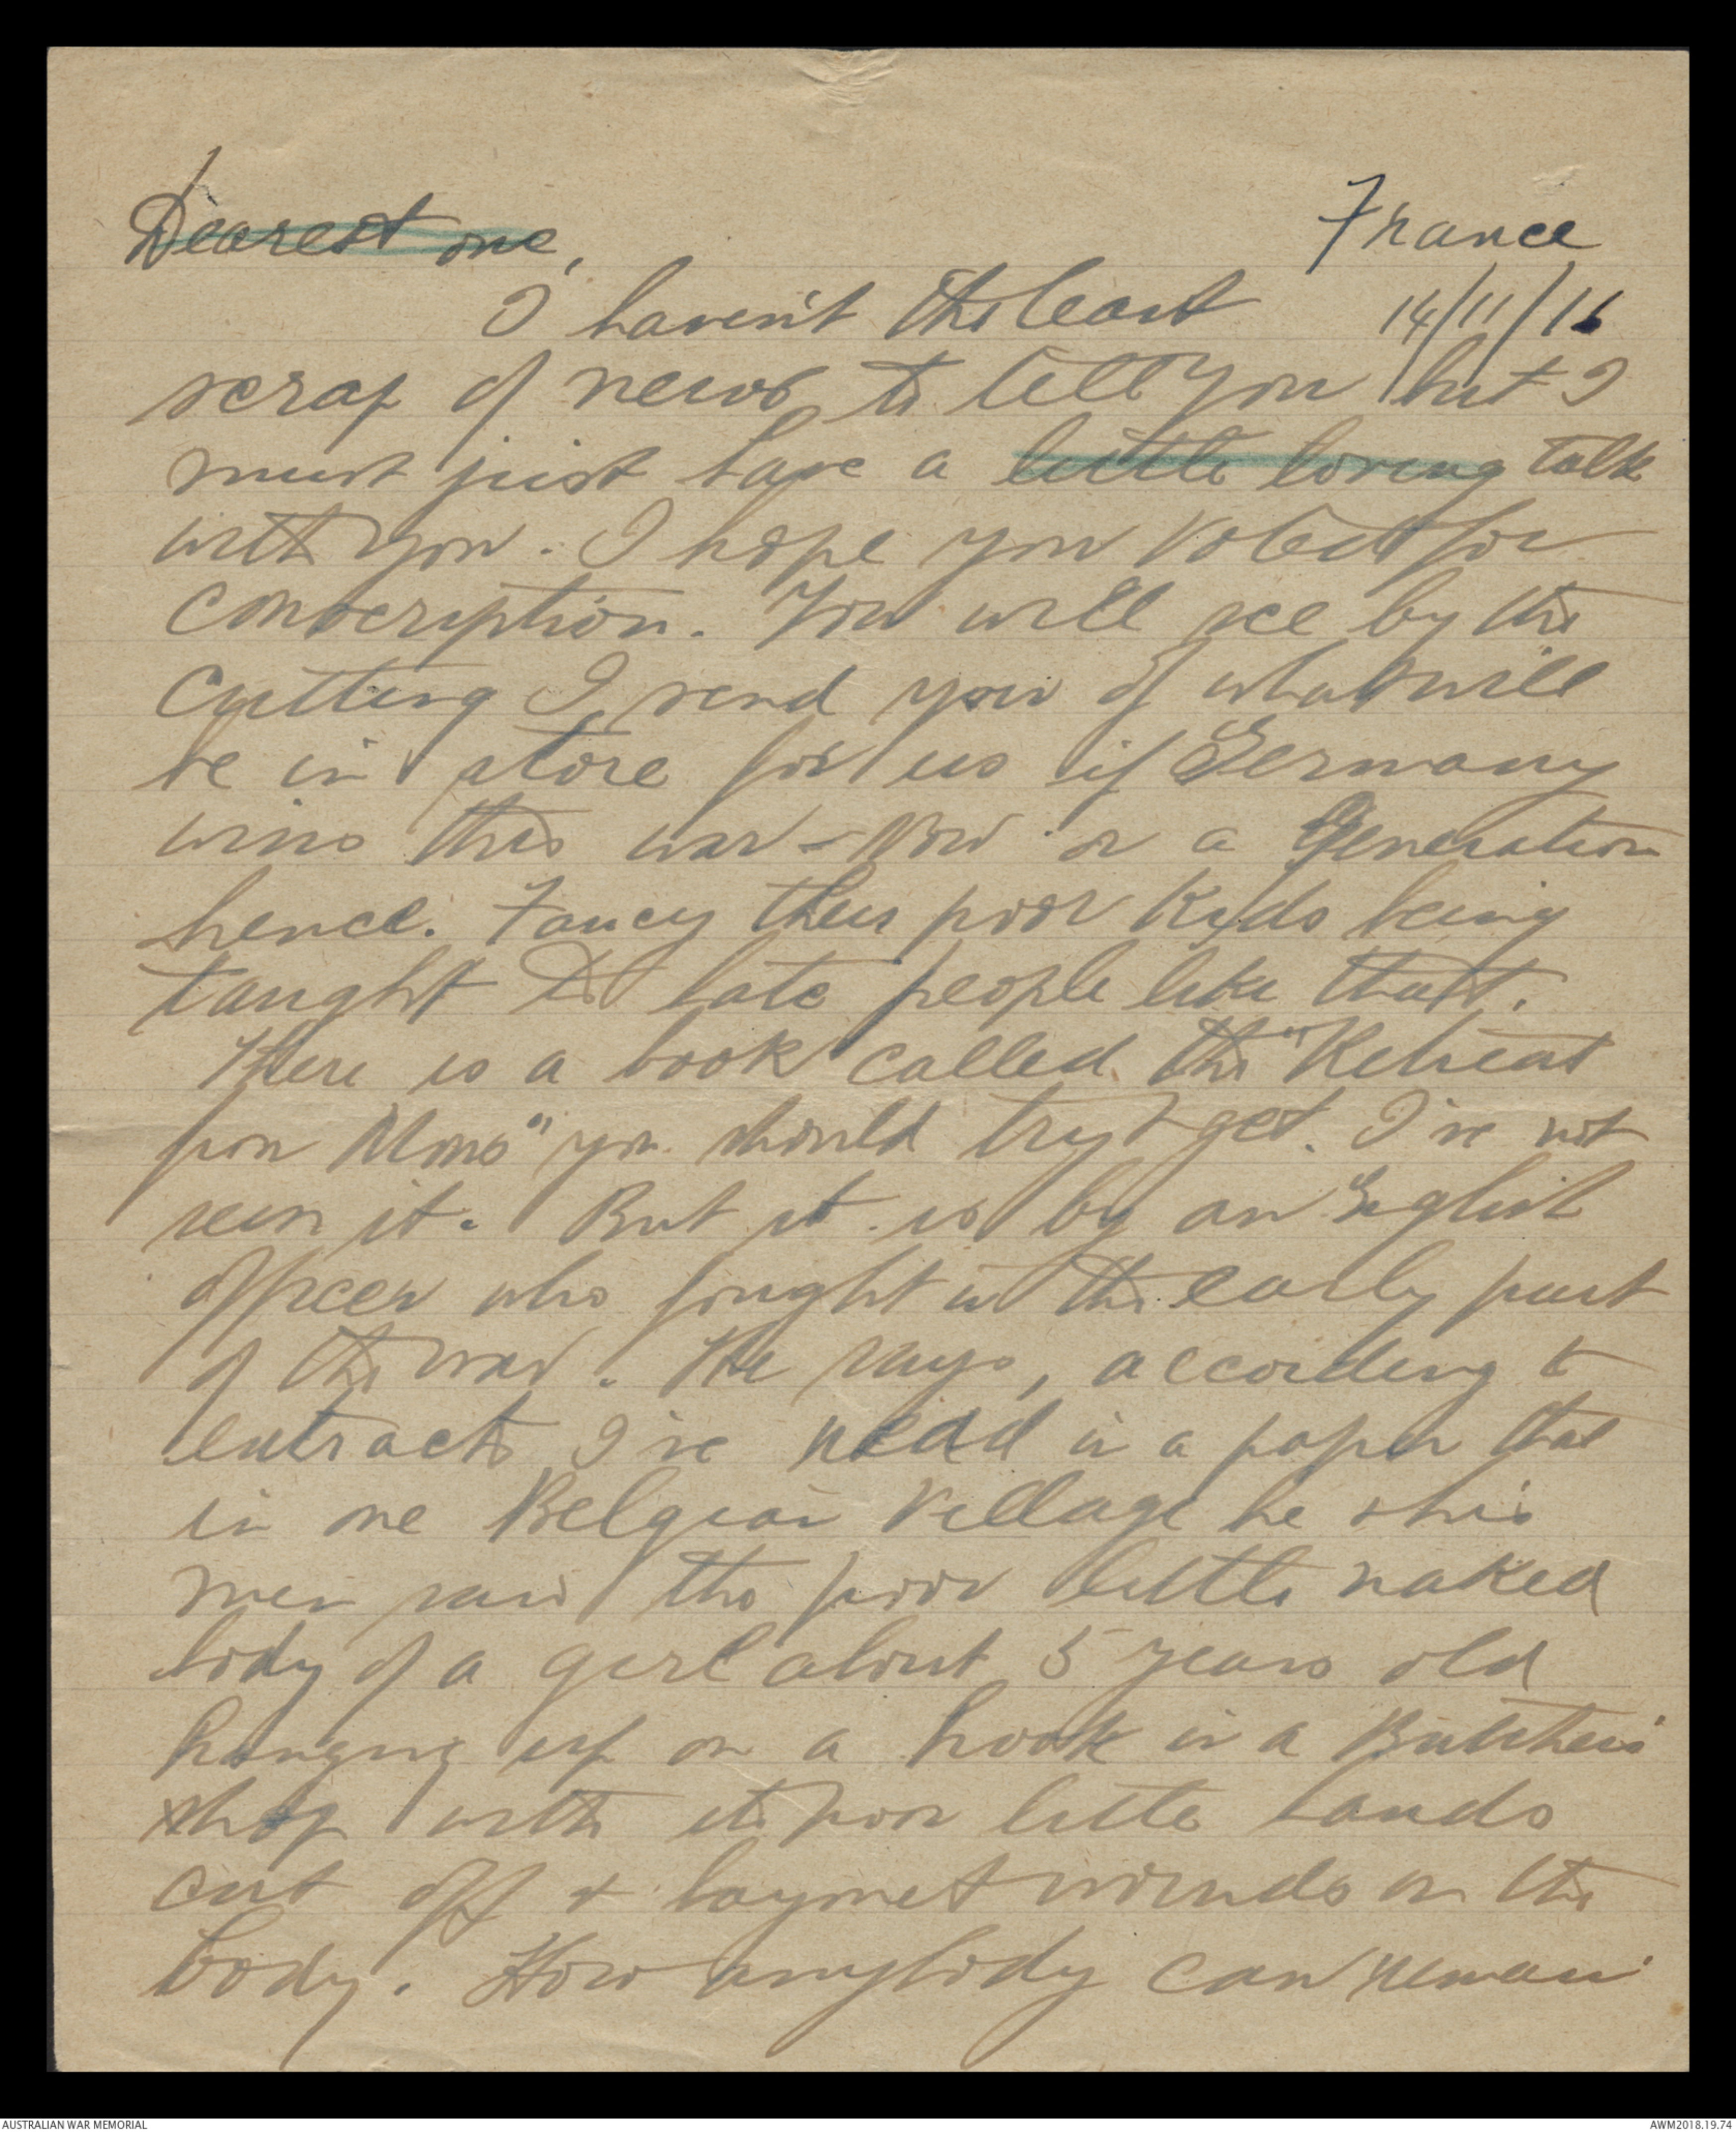 Dearest one,
France
14/11/16
I haven't the least
scrap of news to tell you but I
must just have a little loving talk
with you. I hope you voted for
Conscription. You will see by the
Cutting I send you of what will
be in store for us if Germany
wins this war - Now or a Generation
hence. Fancy their poor kids being
taught to hate people like that.
There is a book called the "Retreat
from Mons" you should try & get. I've not
seen it. But it is by an English
officer who fought in the early part
of the war. He says, according to
extracts I've read in a paper that
in one Belgian Village he & his
men saw the poor little naked
body of a girl about 5 years old
hanging up on a hook in a Butcher's
shop with its poor little hands
cut off & bayonet wounds on the
body. How anybody can remain
AUSTRALIAN WAR MEMORIAL
AWM2018.19.74